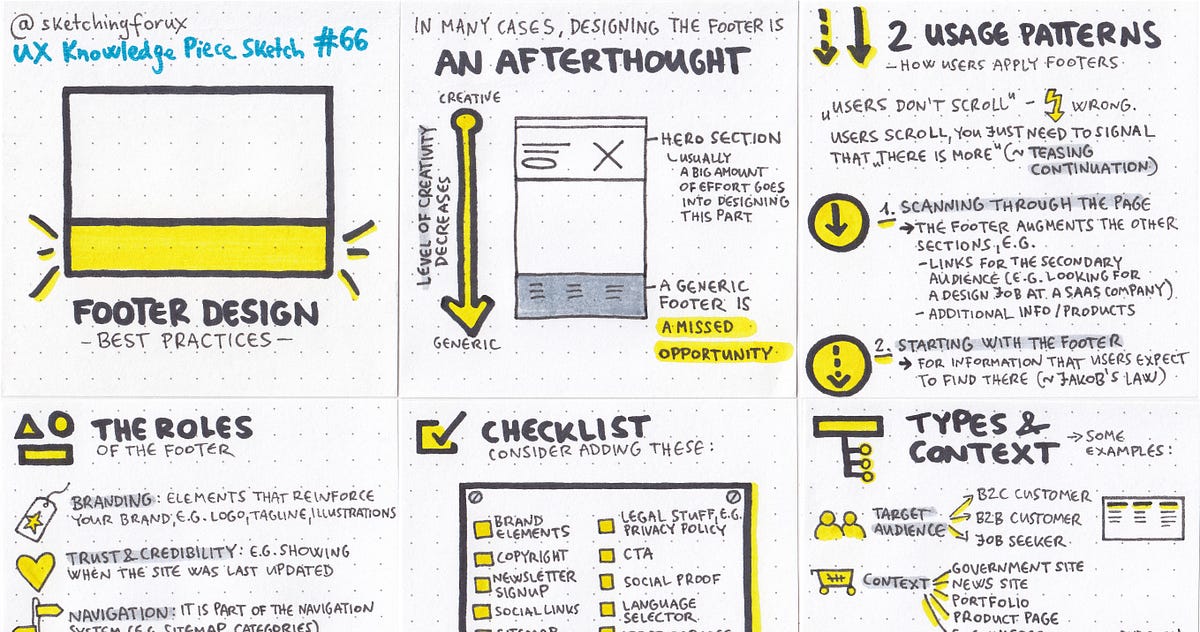 @sketchingforux
UX Knowledge Piece Sketch #66
FOOTER DESIGN
– BEST PRACTICES –
IN MANY CASES, DESIGNING THE FOOTER IS
AN AFTERTHOUGHT
CREATIVE
LEVEL OF CREATIVITY
DECREASES
GENERIC
HERO SECTION
USUALLY
A BIG AMOUNT
OF EFFORT GOES
INTO DESIGNING
THIS PART
A GENERIC
FOOTER IS
A MISSED
OPPORTUNITY
2 USAGE PATTERNS
– HOW USERS APPLY FOOTERS
„USERS DON'T SCROLL" – WRONG.
USERS SCROLL, YOU JUST NEED TO SIGNAL
THAT „THERE IS MORE" (~ TEASING
CONTINUATION)
1. SCANNING THROUGH THE PAGE
→ THE FOOTER AUGMENTS THE OTHER
SECTIONS, E.G.
– LINKS FOR THE SECONDARY
AUDIENCE (E.G. LOOKING FOR
A DESIGN JOB AT A SAAS COMPANY)
– ADDITIONAL INFO / PRODUCTS
2. STARTING WITH THE FOOTER
→ FOR INFORMATION THAT USERS EXPECT
TO FIND THERE (~ JAKOB'S LAW)
THE ROLES
OF THE FOOTER
BRANDING: ELEMENTS THAT REINFORCE
YOUR BRAND, E.G. LOGO, TAGLINE, ILLUSTRATIONS
TRUST & CREDIBILITY: E.G. SHOWING
WHEN THE SITE WAS LAST UPDATED
NAVIGATION: IT IS PART OF THE NAVIGATION
SYSTEM (E.G. SITEMAP, CATEGORIES)
CHECKLIST
CONSIDER ADDING THESE:
BRAND
ELEMENTS
COPYRIGHT
NEWSLETTER
SIGNUP
SOCIAL LINKS
SITEMAP
LEGAL STUFF, E.G.
PRIVACY POLICY
CTA
SOCIAL PROOF
LANGUAGE
SELECTOR
TYPES &
CONTEXT
→ SOME
EXAMPLES:
TARGET
AUDIENCE
B2C CUSTOMER
B2B CUSTOMER
JOB SEEKER
CONTEXT
GOVERNMENT SITE
NEWS SITE
PORTFOLIO
PRODUCT PAGE